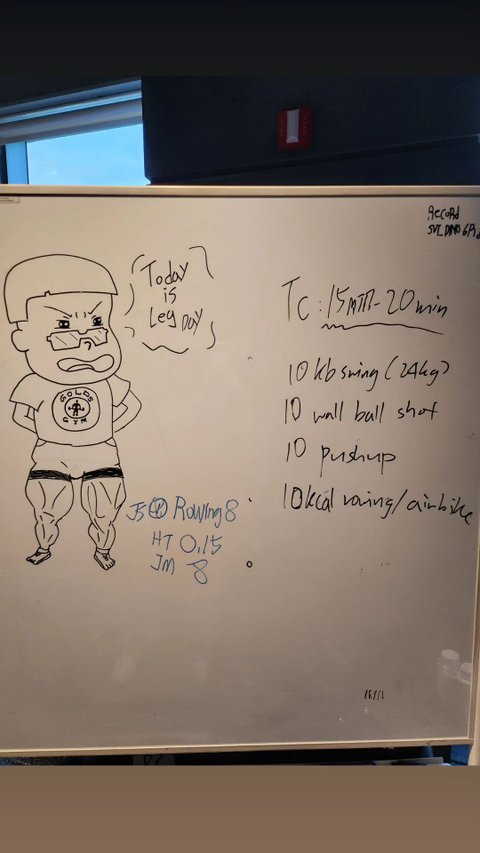 Record
Today
is
Leg DAY
TC : 15min - 20min
10 kb swing (24kg)
10 wall ball shot
10 pushup
10kcal rowing / airbike
GOLDS
GYM
Rowing 8
HT 0.15
JM 8